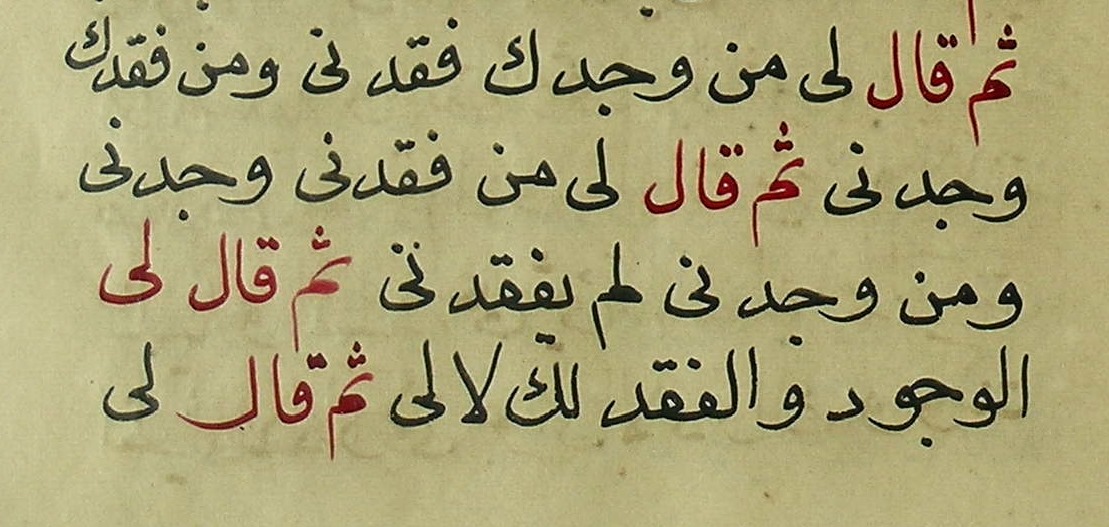 ثم قال لى من وجدك فقدنى ومن فقدك
وجدنى ثم قال لى من فقدنى وجدنى
ومن وجدنى لم يفقدنى ثم قال لى
الوجود والفقد لك لا لى ثم قال لى